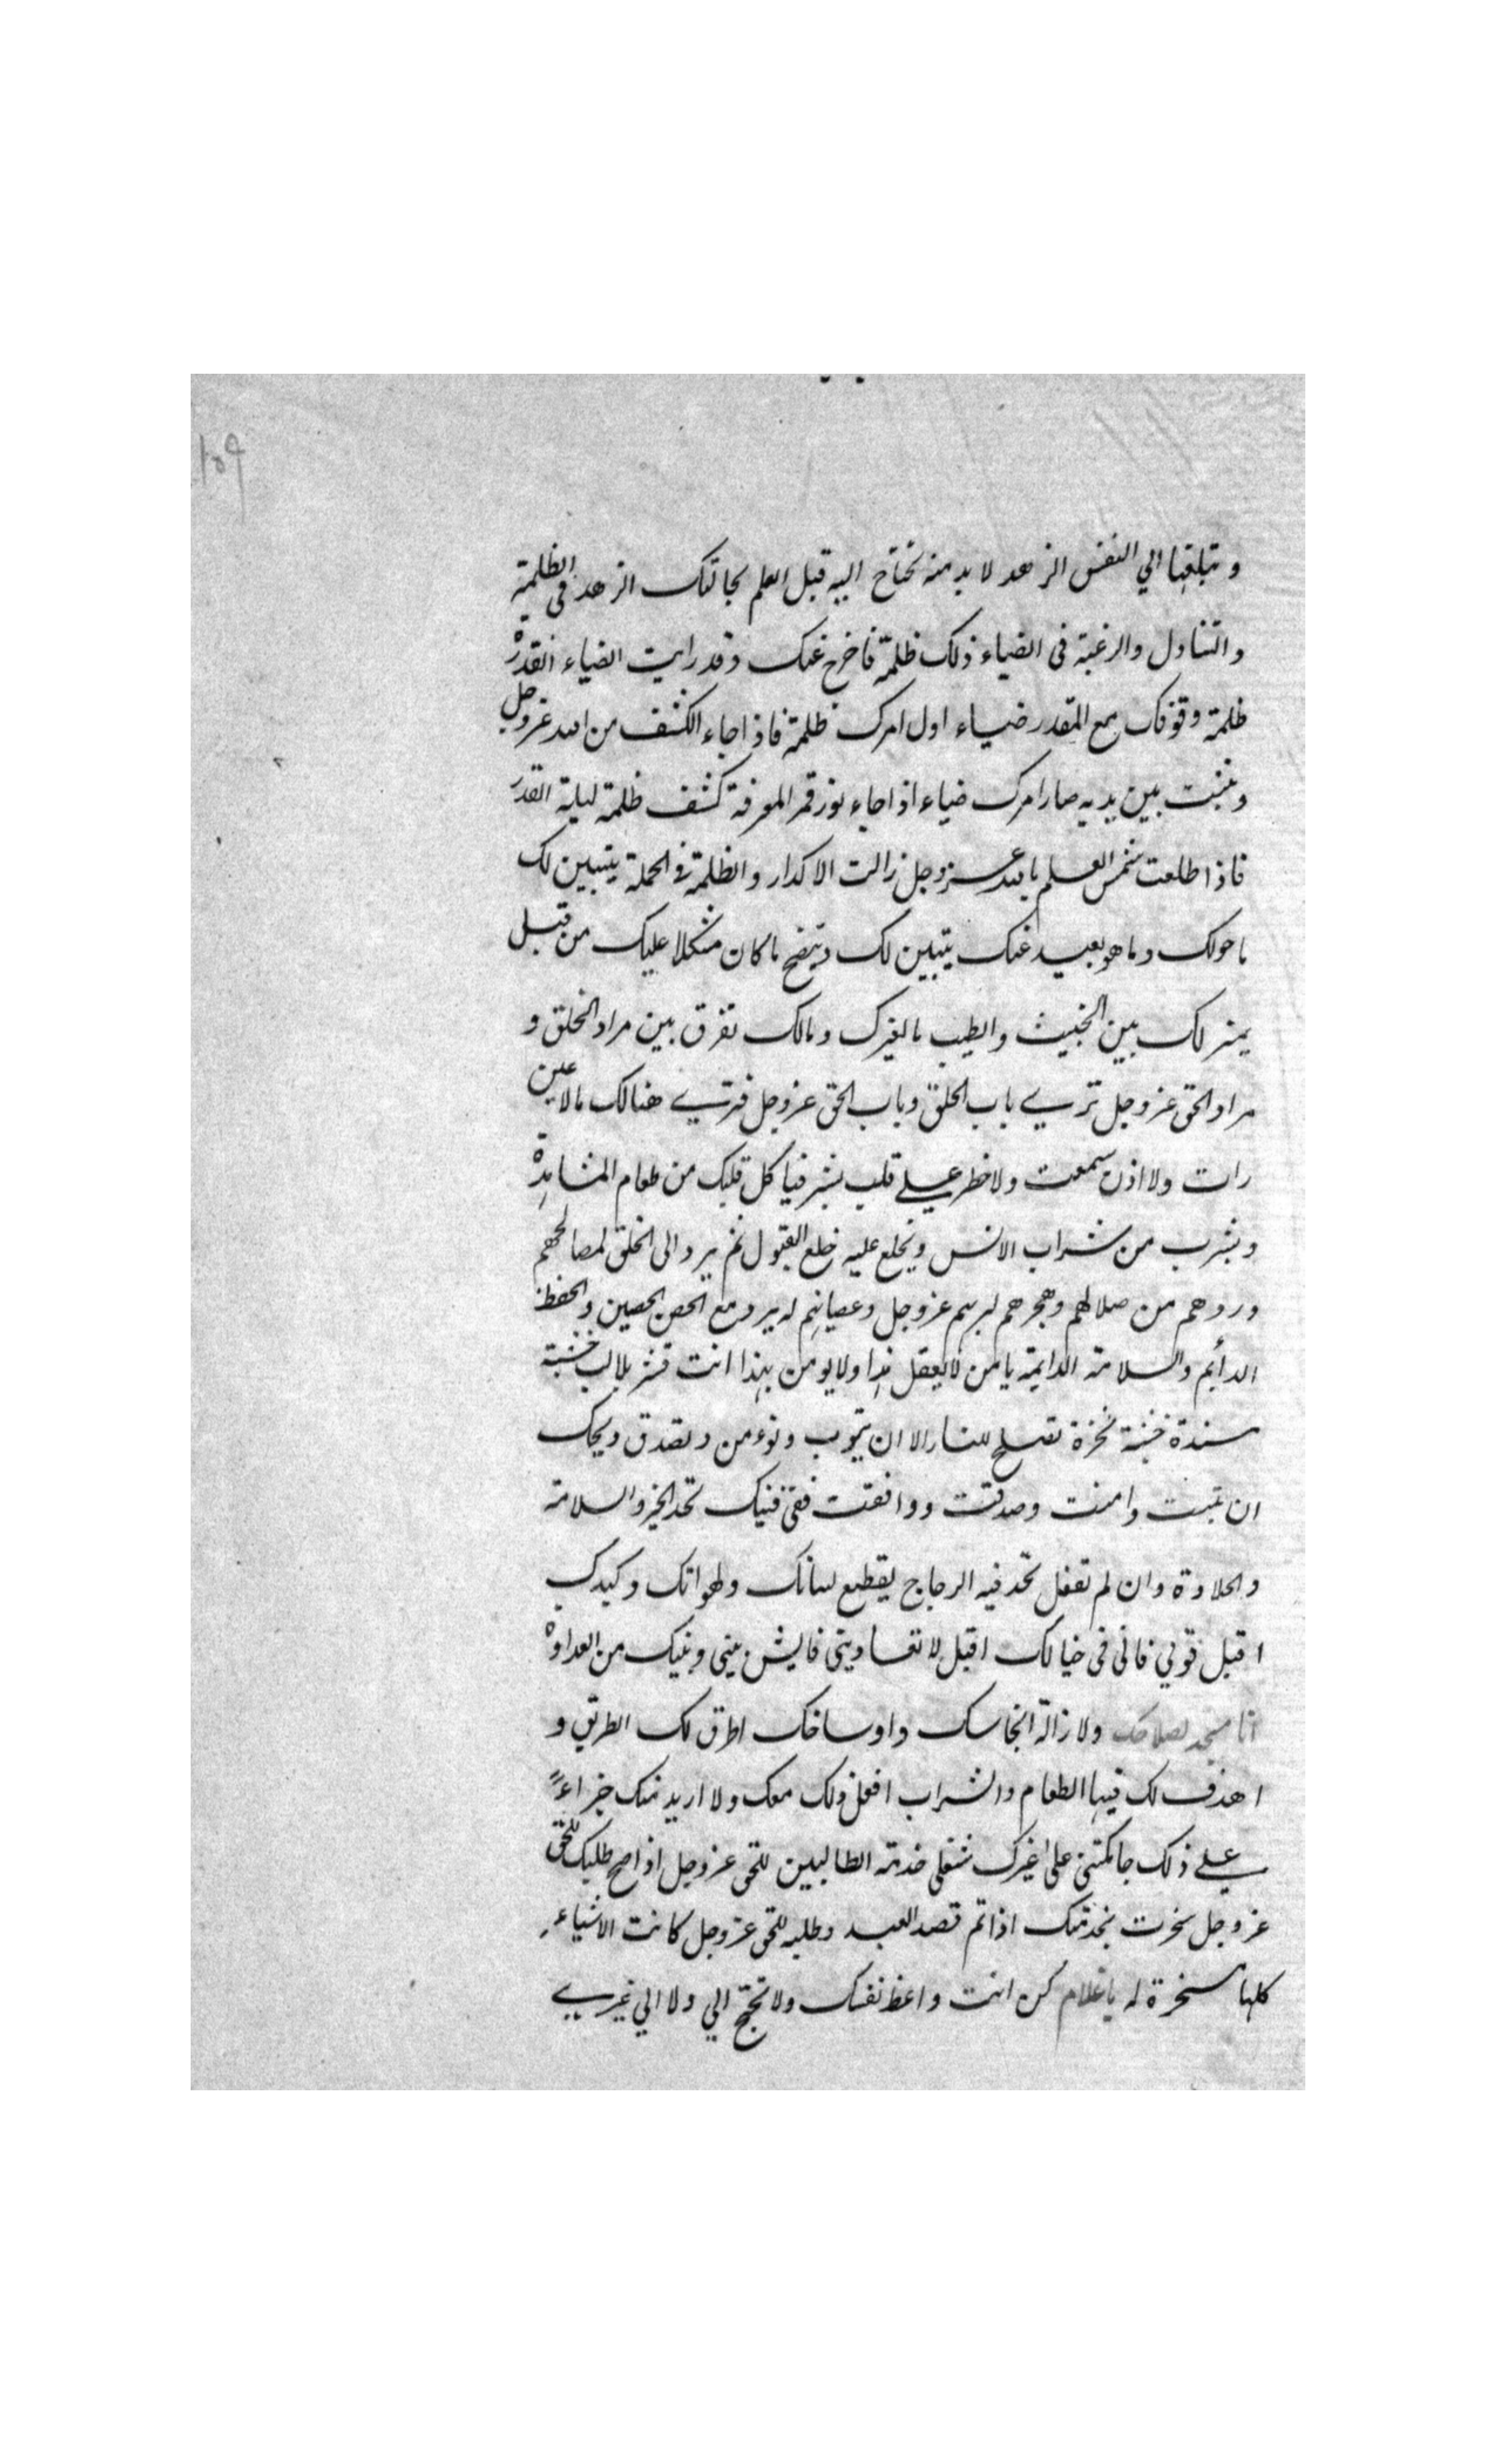 ١٥٩
و تبلغها الي النفس الزهد لا بد منه تحتاج اليه قبل العلم بحالتك الزهد في الظلمة
والتناول والرغبة فى الضياء ذلك ظلمة فاخرج عنك وقد رايت الضياء القدرة
ظلمة وقوفك مع المقدر ضياء اول امرك ظلمة فاذا جاء الكشف من الله عز وجل
وثبت بين يديه صار امرك ضياء اذا جاء نور قمر المعرفة كشف ظلمة ليلة القدر
فاذا طلعت شمس العلم بالله عز وجل زالت الاكدار والظلمة فى الجملة يتبين لك
ما حولك وما هو بعيد عنك يتبين لك ويتضح ما كان مشكلا عليك من قبل
يميز لك بين الخبيث والطيب ما لغيرك وما لك تفرق بين مراد الخلق و
مراد الحق عز وجل تري باب الخلق وباب الحق عز وجل فتري هنالك ما لا عين
رات ولا اذن سمعت ولا خطر علي قلب بشر فياكل قلبك من طعام المشاهدة
ويشرب من شراب الانس ويخلع عليه خلع القبول ثم يرد الى الخلق لمصالحهم
وردهم من ضلالهم وهجرهم لربهم عز وجل وعصيانهم له يرد مع الحصن الحصين والحفظ
الدائم والسلامة الدايمة يا من لا يعقل هذا ولا يومن بهذا انت قشر بلا لب خشبة
مسندة خشبة نخرة تصلح للنار الا ان تتوب وتوءمن وتصدق ويحك
ان تبت وامنت وصدقت ووافقت ففى فنيك تجد الخير والسلامة
والحلاوة وان لم تفعل تجد فيه الزجاج يقطع لسانك ولهواتك وكبدك
اقبل قولي فانى فى حبالك اقبل لا تعاديني فايش بيني وبينك من العداوة
انا منجد لصلاحك ولازالة انجاسك واوساخك اطرق لك الطريق و
اهدف لك فيها الطعام والشراب افعل ذلك معك ولا اريد منك جزاءً
علي ذلك جامكتى على غيرك شغلى خدمة الطالبين للحق عز وجل اذا صح طلبك للحق
عز وجل سخرت بخدمتك اذا تم قصد العبد وطلبه للحق عز وجل كانت الاشياء
كلها مسخرة له يا غلام كن انت واعظ نفسك ولا تحتج الي ولا الي غيري